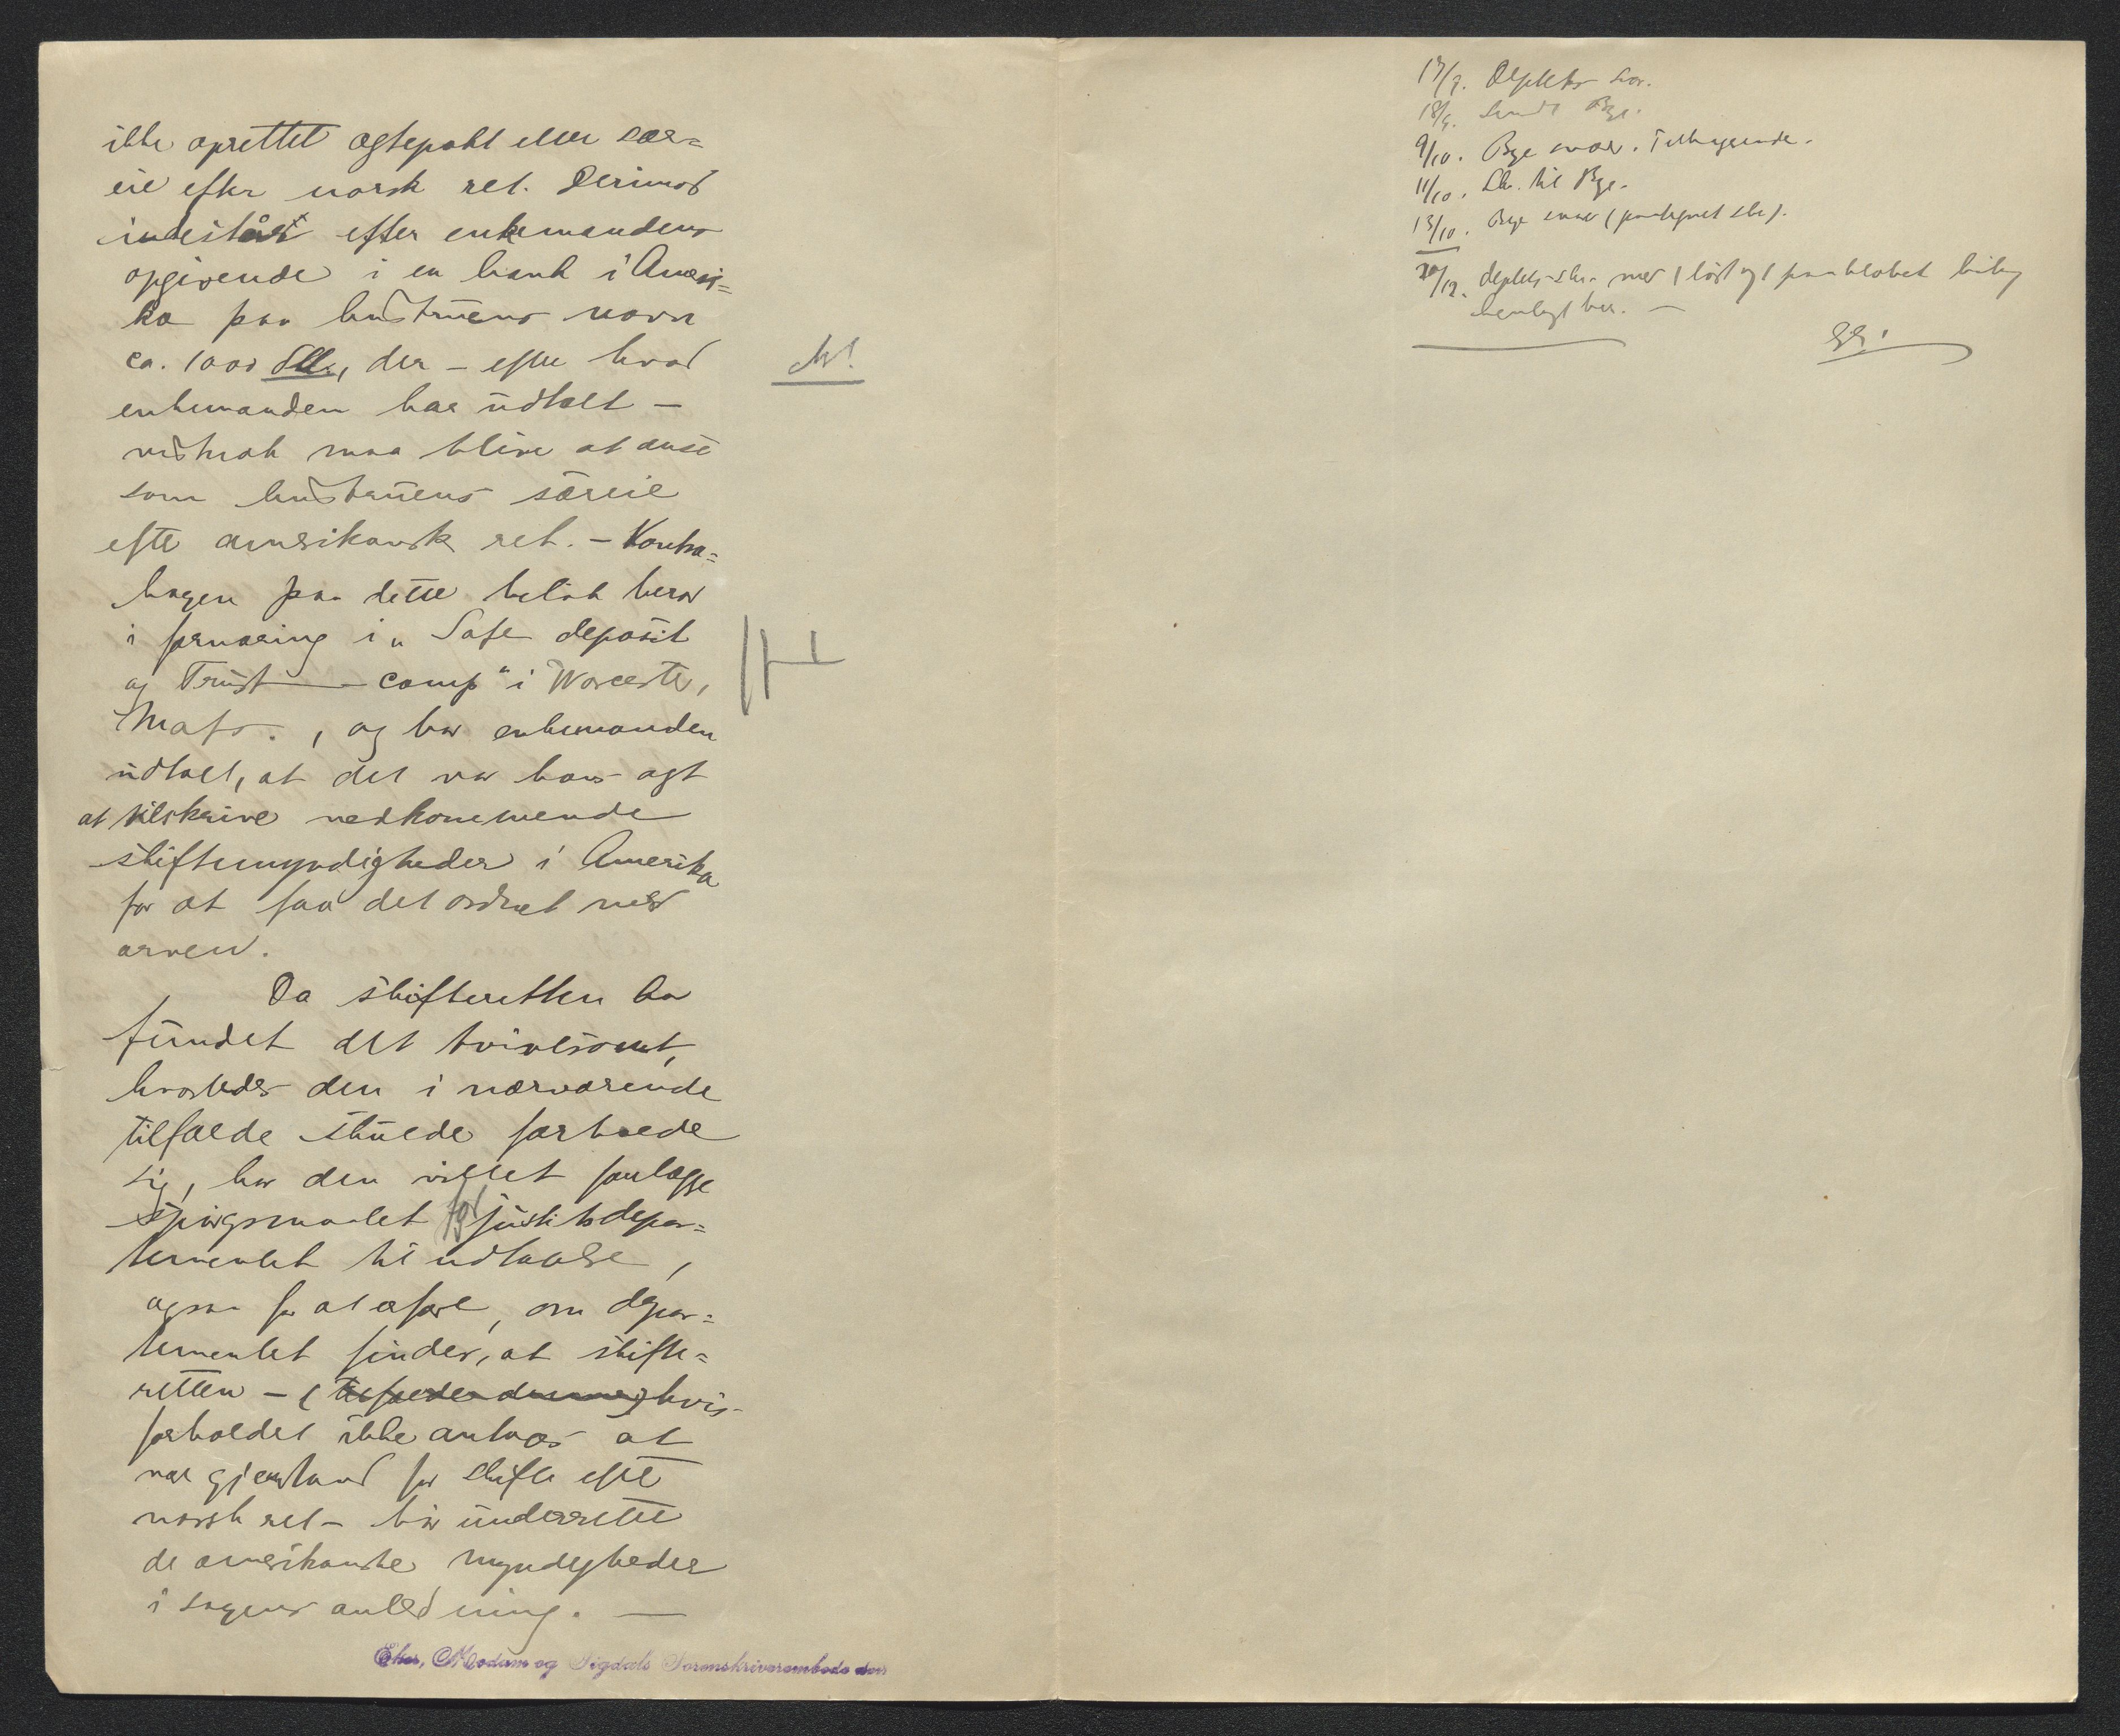 ikke oprettet ægtepakt eller sær=
eie efter norsk ret. Derimod
indestår efter enkemandens
opgivende i en bank i Ameri=
ka paa hustruens navn
ca. 1000 Dll., der – efter hvad
enkemanden har udtalt –
nok maa blive at anse
som hustruens særeie
efter amerikansk ret. – Kontra=
bogen paa dette beløb beror
i forvaring i „Safe deposit
og Trust – comp" i Worcester,
Mass., og har enkemanden
udtalt, at det var hans agt
at tilskrive vedkommende
skiftemyndigheder i Amerika
for at faa det ordnet med
arven.
Da skifteretten har
fundet det tvivlsomt,
hvorledes den i nærværende
tilfælde skulde forholde
sig, har den villet forelægge
spørgsmaalet for justitsdepar=
tementet til udtalelse,
ogsaa for at erfare, om depar=
tementet finder, at skifte=
retten – ( hvis
forholdet ikke antages at
være gjenstand for skifte efter
norsk ret – bør underrette
de amerikanske myndigheder
i sagens anledning. —
Eker, Modum og Sigdals Sorenskriverembede den
N!
17/9. Deptets skr.
18/9. Sendt Bye.
9/10. Bye svar. Tilbagesende.
11/10. Skr. til Bye.
13/10. Bye svar (paategnet skr).
20/12. deptets skr. med 1 løst
henlagt her. —